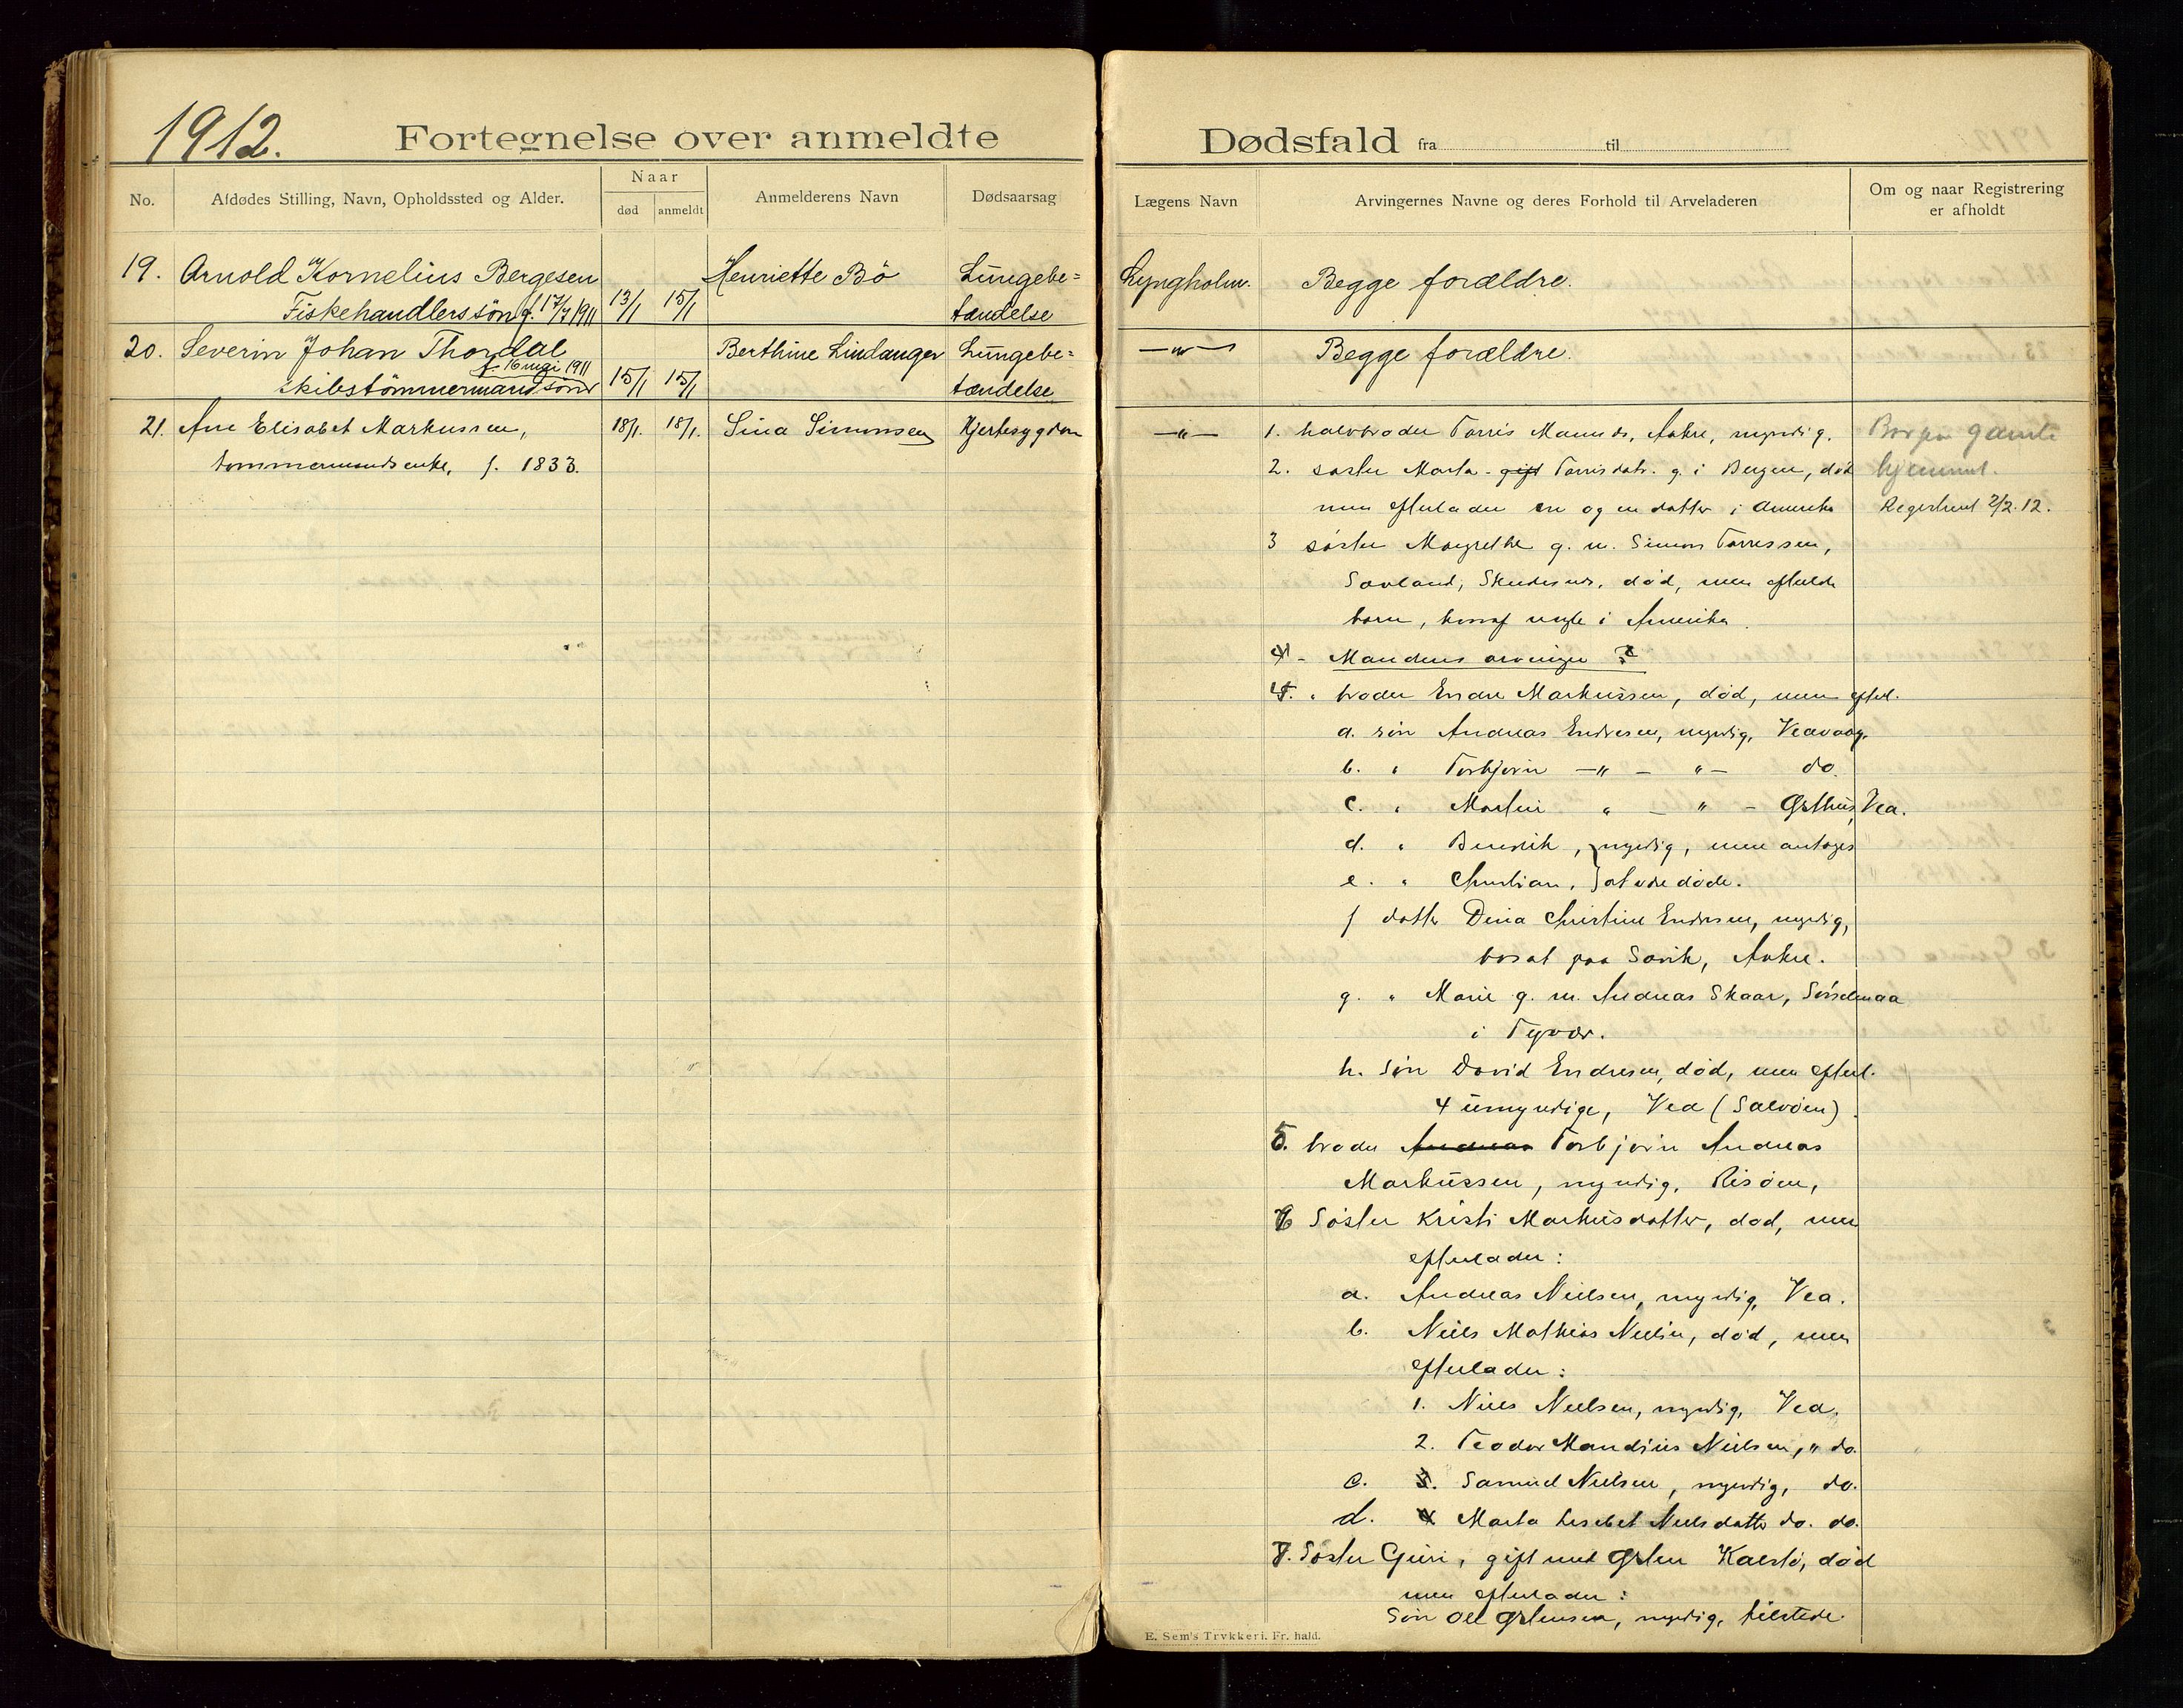 1912.
Fortegnelse over anmeldte
No.
Afdødes Stilling, Navn, Opholdssted og Alder.
Naar
død
anmeldt
Anmelderens Navn
Dødsaarsag
19. Arnold Kornelius Bergesen Henriette Bö Lungebe=
Fiskehandlerssön f. 17/7 1911 13/1 15/1 tændelse
20. Severin Johan Thordal Berthine Lindanger Lungebe=
f. 16 mai 1911
skibstömmermandssön 15/1 15/1 tændelse
21. Ane Elisabet Markussen, 18/1. 18/1. Sina Simonsen Hjertesygdom
tømmermandsenke, f. 1833.
Dødsfald fra til
Lægens Navn
Arvingernes Navne og deres Forhold til Arveladeren
Om og naar Registrering
er afholdt
Lyngholm. Begge forældre.
—„— Begge forældre.
—„— 1. halvbroder Torris Aakre, myndig. Bor paa gamle
2. søster Marta gift Torrisdatr. g. i Bergen, død hjemmet.
men efterlader en og en datter i Amerika Registreret 2/2.12.
3 søster Margrethe g. m. Simon Torressen,
Sovland, Skudesnes, død, men efterladt
børn, hvoraf nogle i Amerika.
4 - Mandens arvinger ?
4. „ broder Endre Markussen, død, men efterl.
a. søn Andreas Endresen, myndig, Veavaag.
b. „ Torbjørn —„— „— do.
c. „ Martin „ — „ — Østhus, Vea.
d. „ Benedik, } myndig, men antages
e. „ Christian, } at være døde.
f datter Dina Christine Endresen, myndig,
bosat paa Sævik, Aakre.
g. „ Marie g. m. Andreas Skaar,
i Tysvær.
h. Søn David Endresen, død, men efterl.
4 umyndige, Vea (Salvøen).
5. broder Andreas Torbjørn Andreas
Markussen, myndig, Risøen,
6 Søster Kristi Markusdatter, død, men
efterlader:
a. Andreas Nielsen, myndig, Vea.
b. Niels Mathias Nielsen, død, men
efterlader:
1. Niels Nielsen, myndig, Vea.
2. Teodor Mandius Nielsen, „ do.
c. 3. Samuel Nielsen, myndig, do.
d. 4 Marta Lisebet Nielsdatter do. do.
7. Søster Guri, gift med Østen Kalstø, død
men efterlader:
Søn Ole Østensen, myndig, tilstede.
E. Sem's Trykkeri. Fr. hald.